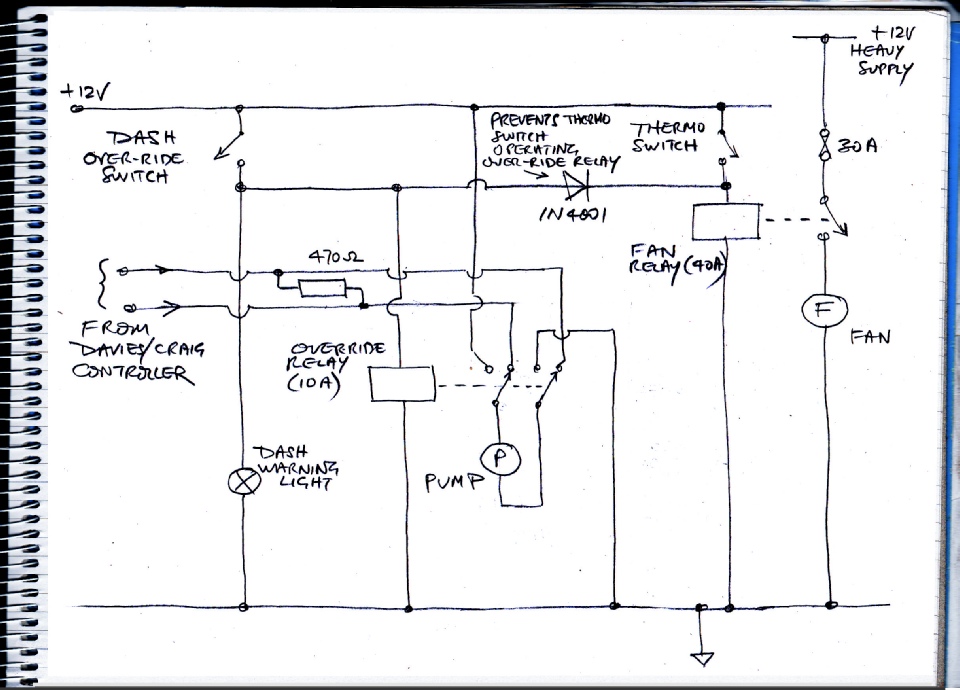 +12V
HEAVY
SUPPLY
+12V
DASH
OVER-RIDE
SWITCH
PREVENTS THERMO
SWITCH
OPERATING
OVER-RIDE RELAY
THERMO
SWITCH
30A
1N4001
FAN
RELAY (40A)
470Ω
F
FAN
FROM
DAVIES/CRAIG
CONTROLLER
OVERRIDE
RELAY
(10A)
DASH
WARNING
LIGHT
P
PUMP